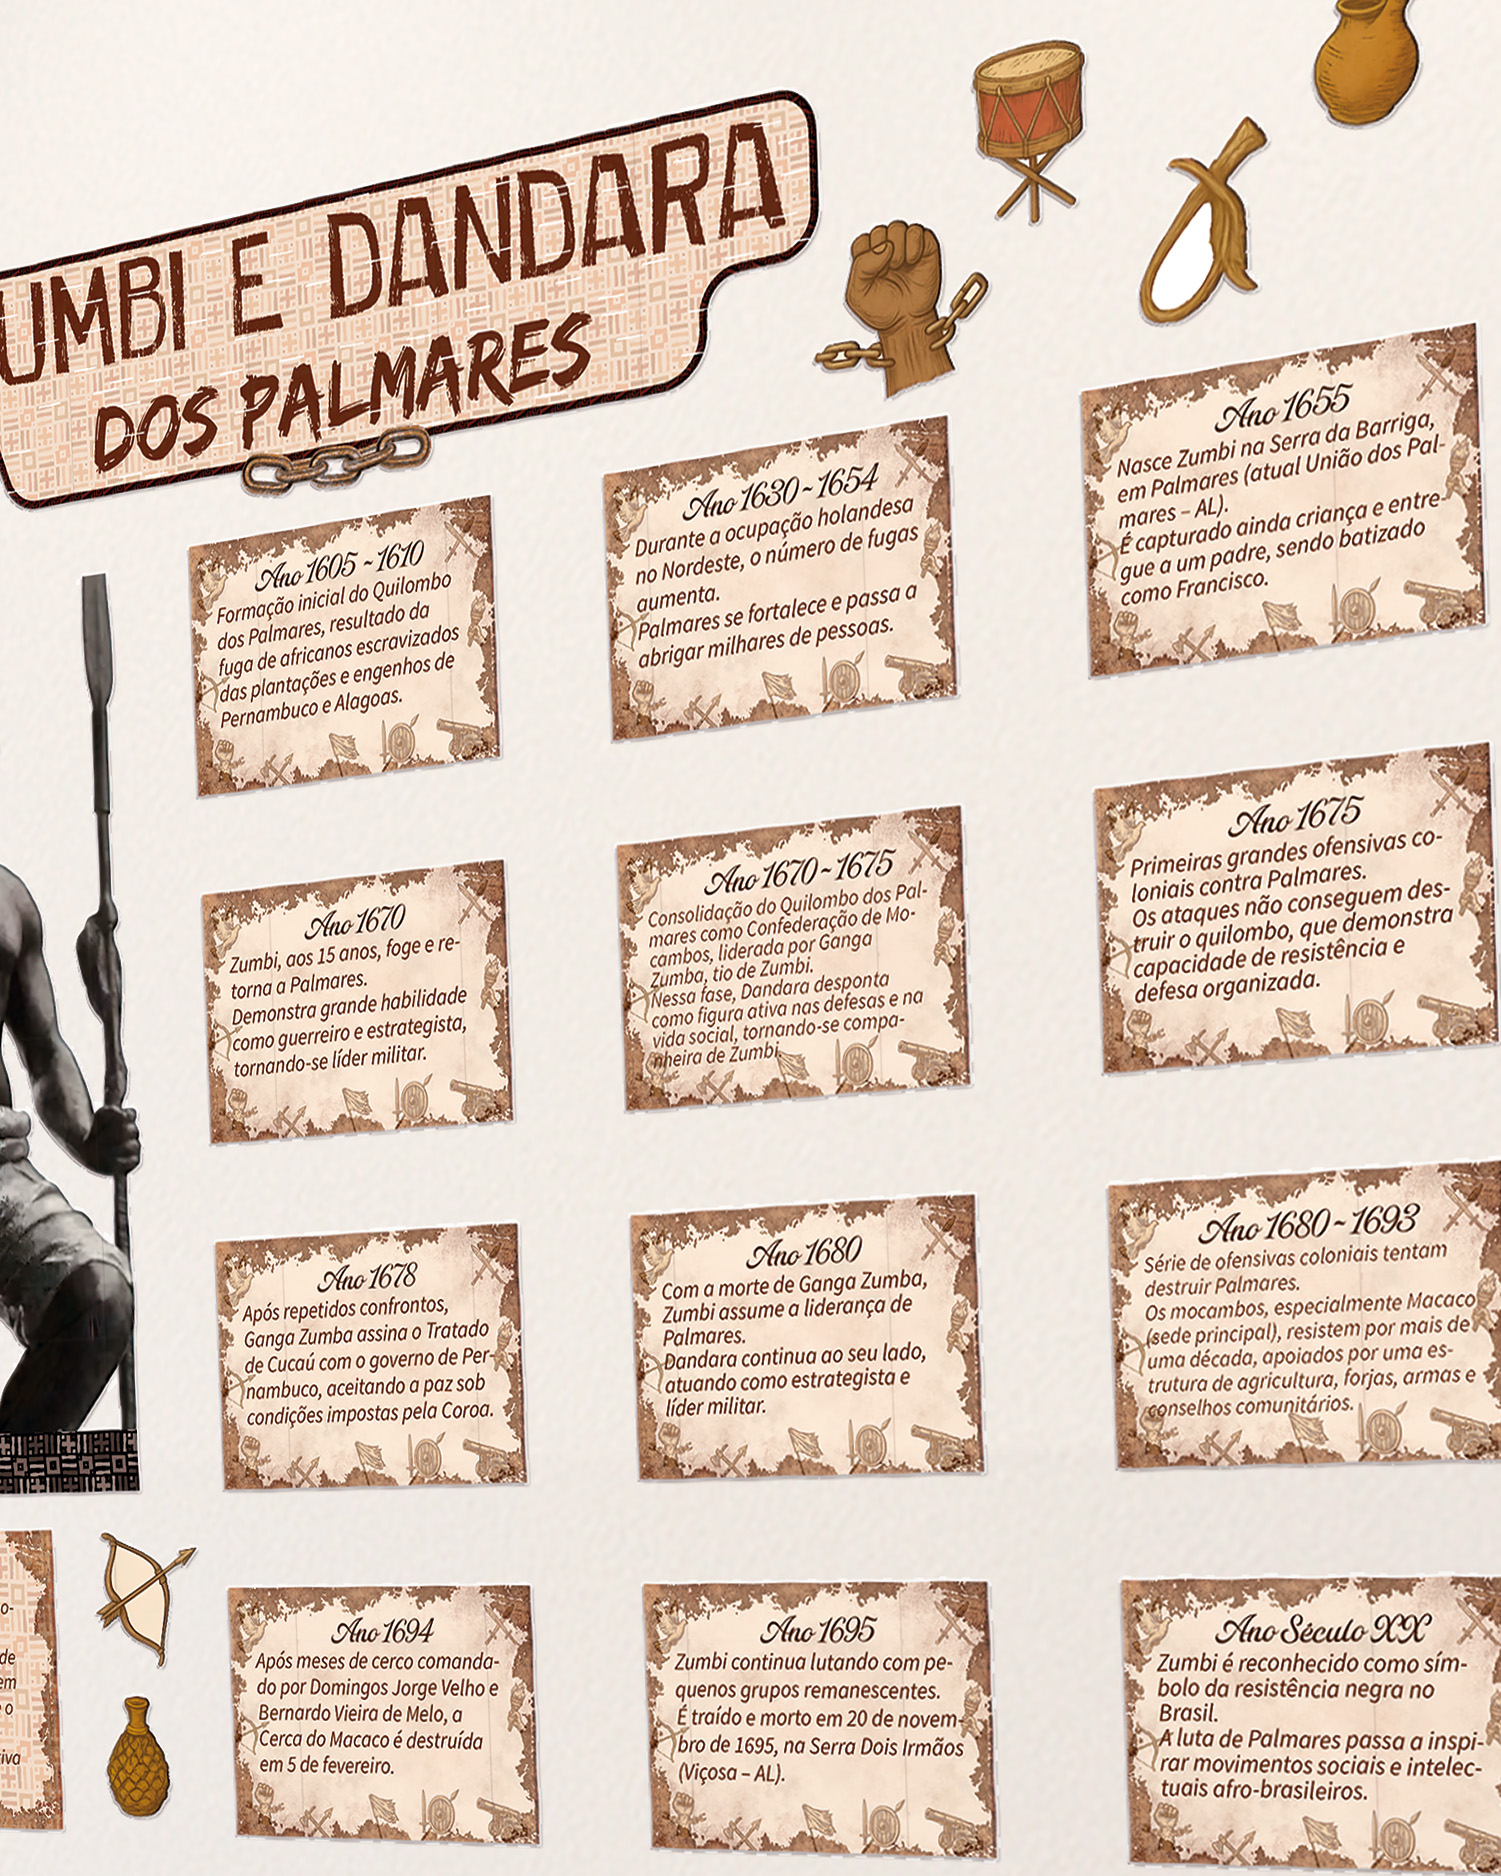 UMBI E DANDARA
DOS PALMARES
Ano 1605 ~ 1610
Formação inicial do Quilombo
dos Palmares, resultado da
fuga de africanos escravizados
das plantações e engenhos de
Pernambuco e Alagoas.
Ano 1630 ~ 1654
Durante a ocupação holandesa
no Nordeste, o número de fugas
aumenta.
Palmares se fortalece e passa a
abrigar milhares de pessoas.
Ano 1655
Nasce Zumbi na Serra da Barriga,
em Palmares (atual União dos Pal-
mares – AL).
É capturado ainda criança e entre-
gue a um padre, sendo batizado
como Francisco.
Ano 1670
Zumbi, aos 15 anos, foge e re-
torna a Palmares.
Demonstra grande habilidade
como guerreiro e estrategista,
tornando-se líder militar.
Ano 1670 ~ 1675
Consolidação do Quilombo dos Pal-
mares como Confederação de Mo-
cambos, liderada por Ganga
Zumba, tio de Zumbi.
Nessa fase, Dandara desponta
como figura ativa nas defesas e na
vida social, tornando-se compa-
nheira de Zumbi.
Ano 1675
Primeiras grandes ofensivas co-
loniais contra Palmares.
Os ataques não conseguem des-
truir o quilombo, que demonstra
capacidade de resistência e
defesa organizada.
Ano 1678
Após repetidos confrontos,
Ganga Zumba assina o Tratado
de Cucaú com o governo de Per-
nambuco, aceitando a paz sob
condições impostas pela Coroa.
Ano 1680
Com a morte de Ganga Zumba,
Zumbi assume a liderança de
Palmares.
Dandara continua ao seu lado,
atuando como estrategista e
líder militar.
Ano 1680 ~ 1693
Série de ofensivas coloniais tentam
destruir Palmares.
Os mocambos, especialmente Macaco
(sede principal), resistem por mais de
uma década, apoiados por uma es-
trutura de agricultura, forjas, armas e
conselhos comunitários.
o-
de
em
o
iva
Ano 1694
Após meses de cerco comanda-
do por Domingos Jorge Velho e
Bernardo Vieira de Melo, a
Cerca do Macaco é destruída
em 5 de fevereiro.
Ano 1695
Zumbi continua lutando com pe-
quenos grupos remanescentes.
É traído e morto em 20 de novem-
bro de 1695, na Serra Dois Irmãos
(Viçosa – AL).
Ano Século XX
Zumbi é reconhecido como sím-
bolo da resistência negra no
Brasil.
A luta de Palmares passa a inspi-
rar movimentos sociais e intelec-
tuais afro-brasileiros.